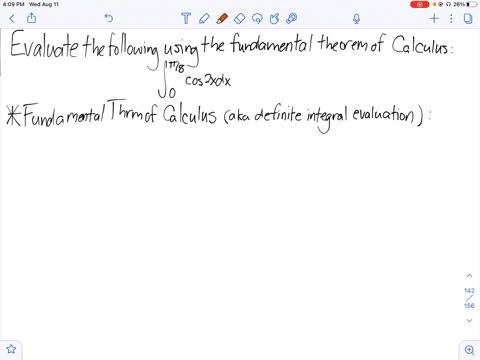 4:09 PM Wed Aug 11
26%
Evaluate the following using the fundamental theorem of Calculus:
∫₀^π/8 cos2xdx
*Fundamental Thrm of Calculus (aka definite integral evaluation):
142
/
156